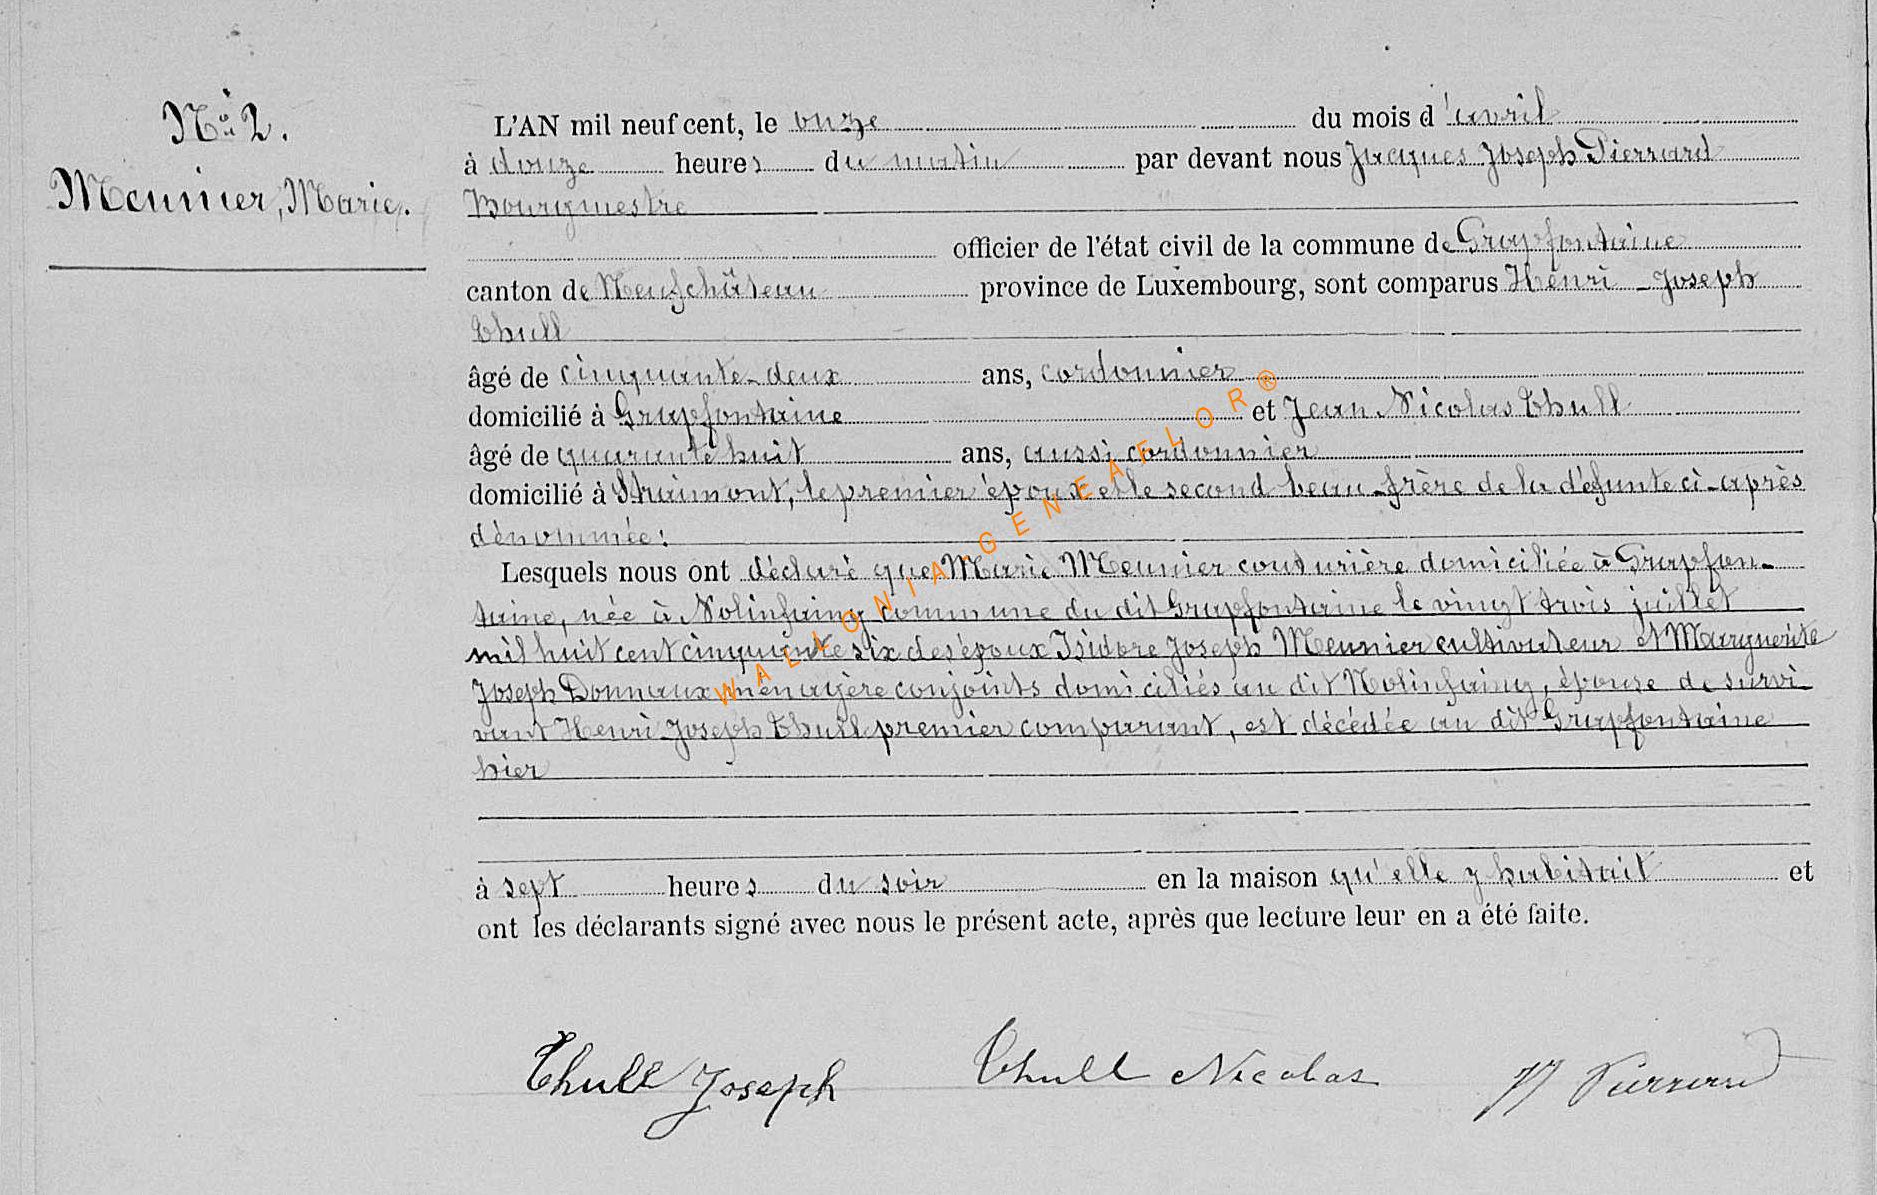 N° 2.
Meunier, Marie.
L'AN mil neuf cent, le onze du mois d'avril
à douze heures du matin par devant nous Jacques Joseph Pierrard
Bourgmestre
officier de l'état civil de la commune de Grapfontaine
canton de Neufchâteau province de Luxembourg, sont comparus Henri-Joseph
Thull
âgé de cinquante-deux ans, cordonnier
domicilié à Grapfontaine et Jean Nicolas Thull
âgé de quarante huit ans, aussi cordonnier
domicilié à Straimont, le premier époux et le second beau-frère de la défunte ci-après
dénommée:
Lesquels nous ont déclaré que Marie Meunier couturière domiciliée à Grapfon-
taine, née à Nolinfaing commune du dit Grapfontaine le vingt trois juillet
mil huit cent cinquante six des époux Isidore Joseph Meunier cultivateur et Marguerite
Joseph Donnaux ménagère conjoints domiciliés au dit Nolinfaing, épouse de survi-
vant Henri Joseph Thull premier comparant, est décédée au dit Grapfontaine
hier
à sept heures du soir en la maison qu'elle y habitait et
ont les déclarants signé avec nous le présent acte, après que lecture leur en a été faite.
Thull Joseph Thull Nicolas JJ Pierrard
WALLONIA-GENEAFLOR®